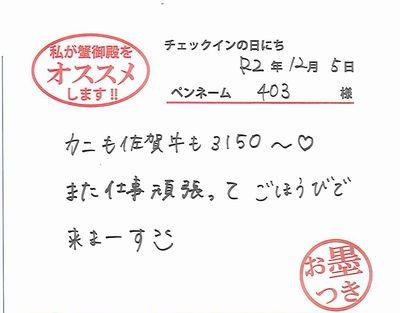 私が蟹御殿を
オススメ
します!!
チェックインの日にち
R2年12月5日
ペンネーム 403 様
カニも佐賀牛も3150〜♡
また仕事頑張って ごほうびで
来まーす
お墨
つき